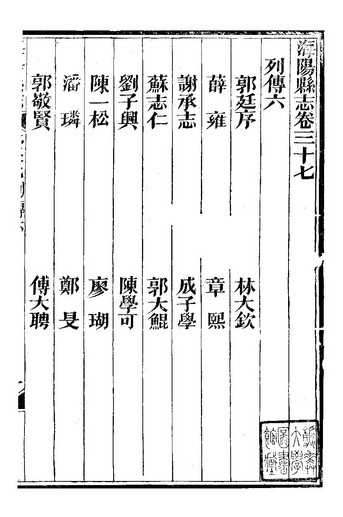 海陽縣志卷三十七
列傳六
郭廷序 林大欽
薛雍 章熙
謝承志 成子學
蘇志仁 郭大鯤
劉子興 陳學可
陳一松 廖瑚
潘璘 鄭旻
郭敬賢 傅大聘